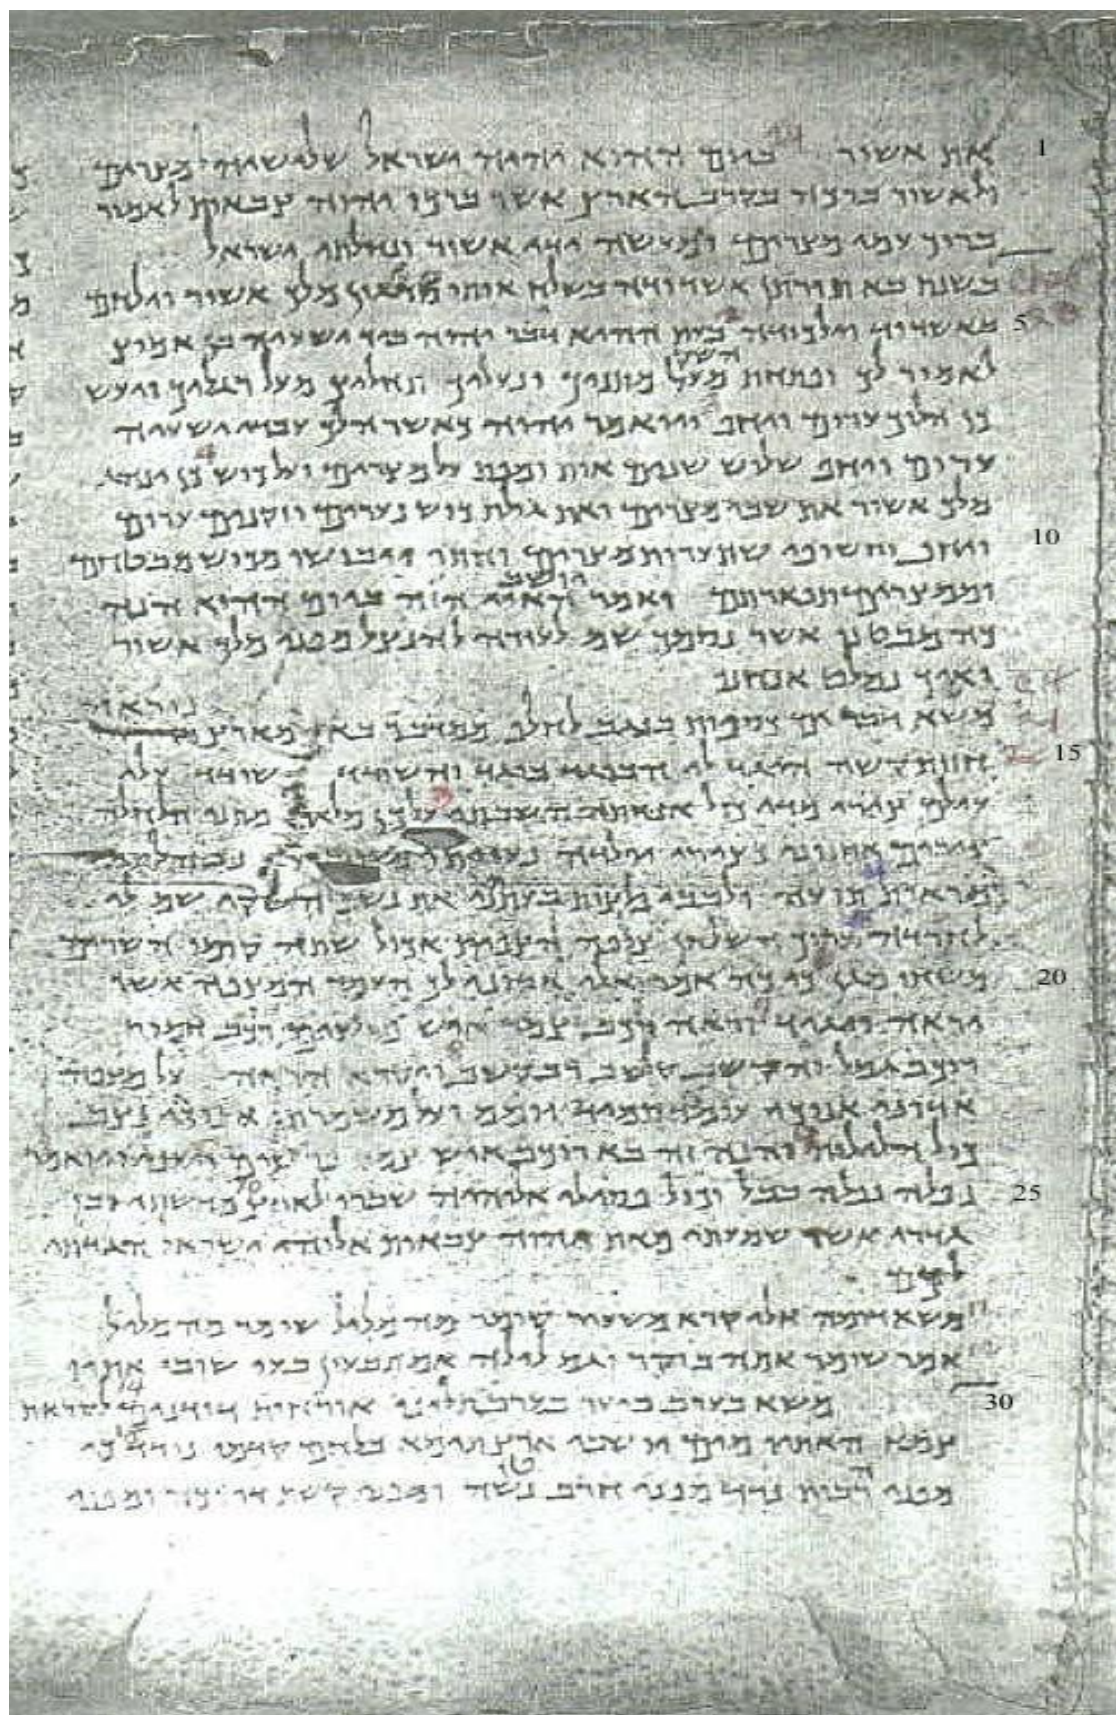 1 את אשור ביום ההוא יהיה ישראל שלישיה מצרים
ולאשור ברכה בקרב הארץ אשר ברכו יהוה צבאות לאמור
ברוך עמי מצרים ומעשה ידי אשור ונחלתי ישראל
בשנת בא תורתן אשדודה בשלח אותו סרגון מלך אשור וילחם
5 באשדוד וילכודה בעת ההיא דבר יהוה ביד ישעיה בן אמוץ
לאמור לך ופתחת השק מעל מותניך ונעליך תחלוץ מעל רגליך ויעש
כן הלוך ערום ויחף ויואמר יהוה כאשר הלך עבדי ישעיה
ערום ויחף שלוש שנים אות ומפת על מצרים ועל כוש כן ינהג
מלך אשור את שבי מצרים ואת גלות כוש נערים וזקנים ערום
10 ויחף וחשופי שת ערות מצרים וחתו ויבושו מכוש מבטחם
וממצרים תפארתם ואמר יושב האי הזה ביום ההוא הנה
כה מבטנו אשר נסמך שם לעזרה להנצל מפני מלך אשור
ואיך נמלט אנחנו
משא דבר ים כסופות בנגב לחלף ממדבר בא מארץ נוראה
15 חזות קשה הוגד לי הבוגד בוגד והשודד שודד עלי
עילם צירי מדי כול אנחתה השבתי על כן מלאו מתני חלחלה
צירים אחזוני כצירי יולדה נעויתי נבהלתי
תועה ולבבי פלצות בעתתני את נשף חשקי שם לי
לחרדה ערוך השלחן צפה הצפית אכול שתה קומו השרים
20 משחו מגן כי כה אמר אלי אדוני לך העמד המצפה אשר
יראה ויגיד וראה רכב צמד איש פרשים רכב חמור
רוכב גמל והקשיב קשב רב קשב ויקרא הראה על מצפה
אדוני אנוכי עומד תמיד יומם ועל משמרתי אנוכי נצב
כול הלילה והנה זה בא רוכב איש צמד פרשים ויען ויואמר
25 נפלה נפלה בבל וכול פסילי אלוהיה שברו לארץ
גדרי אשר שמעתי מאת יהוה צבאות אלוהי ישראל הגדתי
לכם
משא דומה אלי קרא משעיר שומר מה מליל שומר מה מליל
אמר שומר אתה בוקר וגם לילה אם תבעון בעו שובו אתיו
30 משא בערב ביער בערב תלינו אורחות דודנים לקראת
צמא האתיו מים יושבי ארץ תימא בלחם קדמו נודד כי
מפני רבות נדד מפני חרב נטושה ומפני קשת דרוכה ומפני